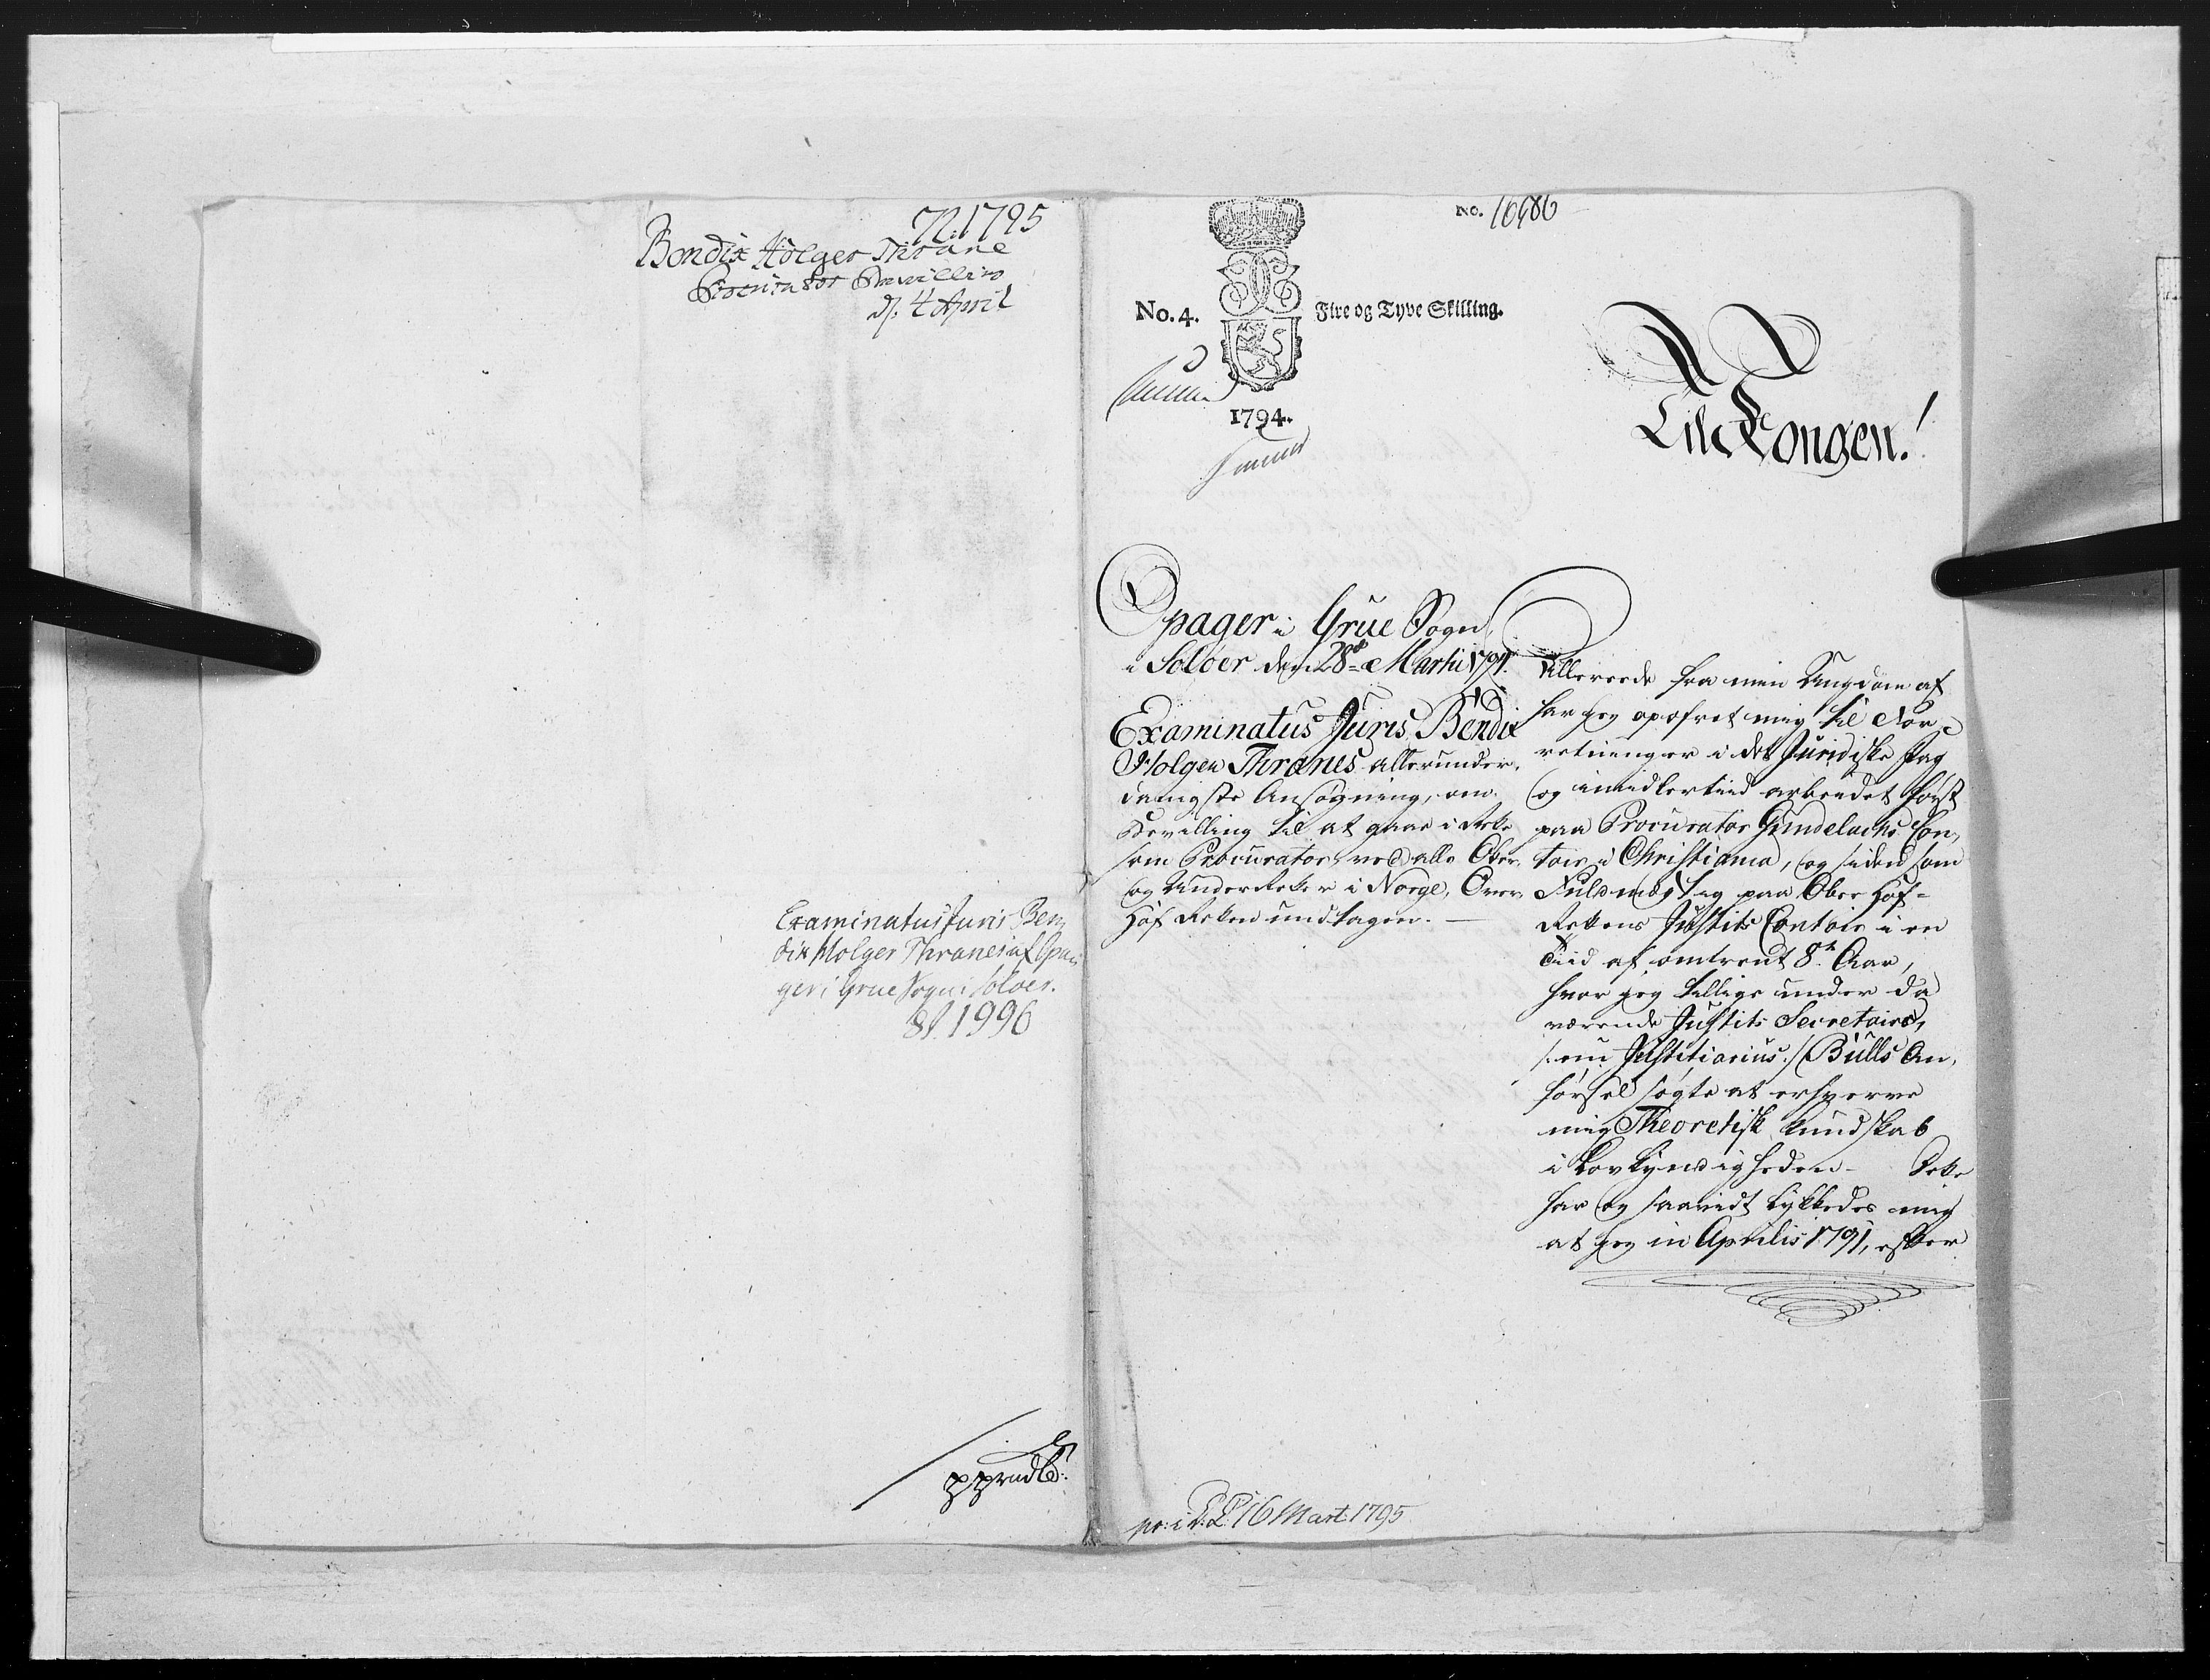 72. 1795
Bendix Holger Thrane
Procurator Bevilling
d. 4 April
Examinatus Juris Ben
dix Holger Thranes af Opa
ger i Grue Sogn i Soloer.
1996
No. 16486
No. 4.
Fire og Tyve Skilling.
1794.
Til Kongen!
Opager i Grue Sogn
i Soloer den 28de Martii 179
Examinatus Juris Bendix
Holger Thranes allerunder-
danigste Ansøgning, om
Bevilling til at gaae i Rette
som Procurator ved alle Over
og Underretter i Norge, Over
Hof Retten undtagen.
Allereede fra min Ungdom af
har jeg opofret mig til For-
retninger i det Juridiske Fag
og imidlertiid arbeidet først
paa Procurator Gundelachs Con-
toir i Christiania, og siden som
Fuldmægtig paa Ober Hof-
Rettens Justits Contoir i en
Tiid af omtrent 8te Aar,
hvor jeg tillige under da
værende Justits Secretaire,
/: nu Justitiarius :/ Bulls An-
førsel søgte at erhverve
mig Theoretisk kundskab
i Lovkyndigheden - Dette
har og saavidt lykkedes mig
at jeg in Aprilis 1791, efter
pr: i D: C: 16 Mart: 1795